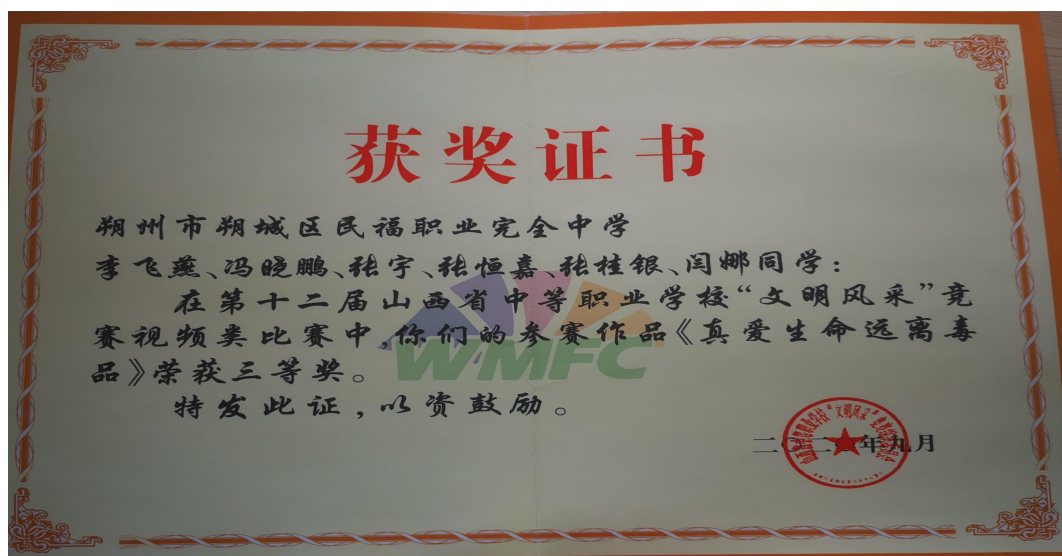 获奖证书
朔州市朔城区民福职业完全中学
李飞燕、冯晓鹏、张宇、张恒嘉、张桂银、闫娜同学：
在第十二届山西省中等职业学校“文明风采”竞
赛视频类比赛中，你们的参赛作品《真爱生命远离毒
品》荣获三等奖。
特发此证，以资鼓励。
WMFC
年九月